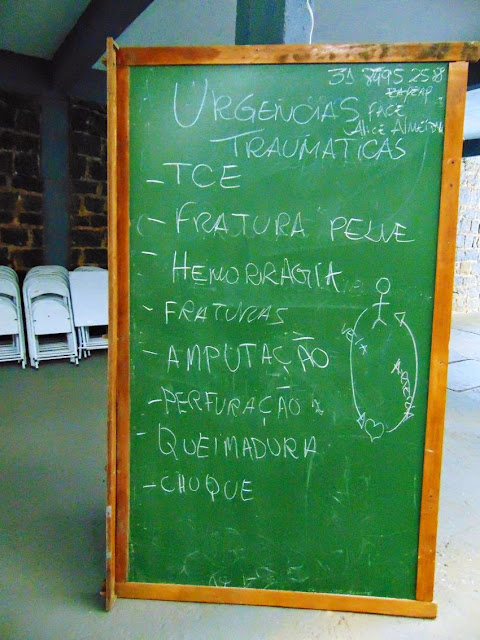 31 8495 258
FACE
Alice Almeida
URGENCIAS
TRAUMATICAS
- TCE
- FRATURA PELVE
- HEMORRAGIA
- FRATURAS
- AMPUTAÇÃO
- PERFURAÇÃO
- QUEIMADURA
- CHOQUE
VEIA